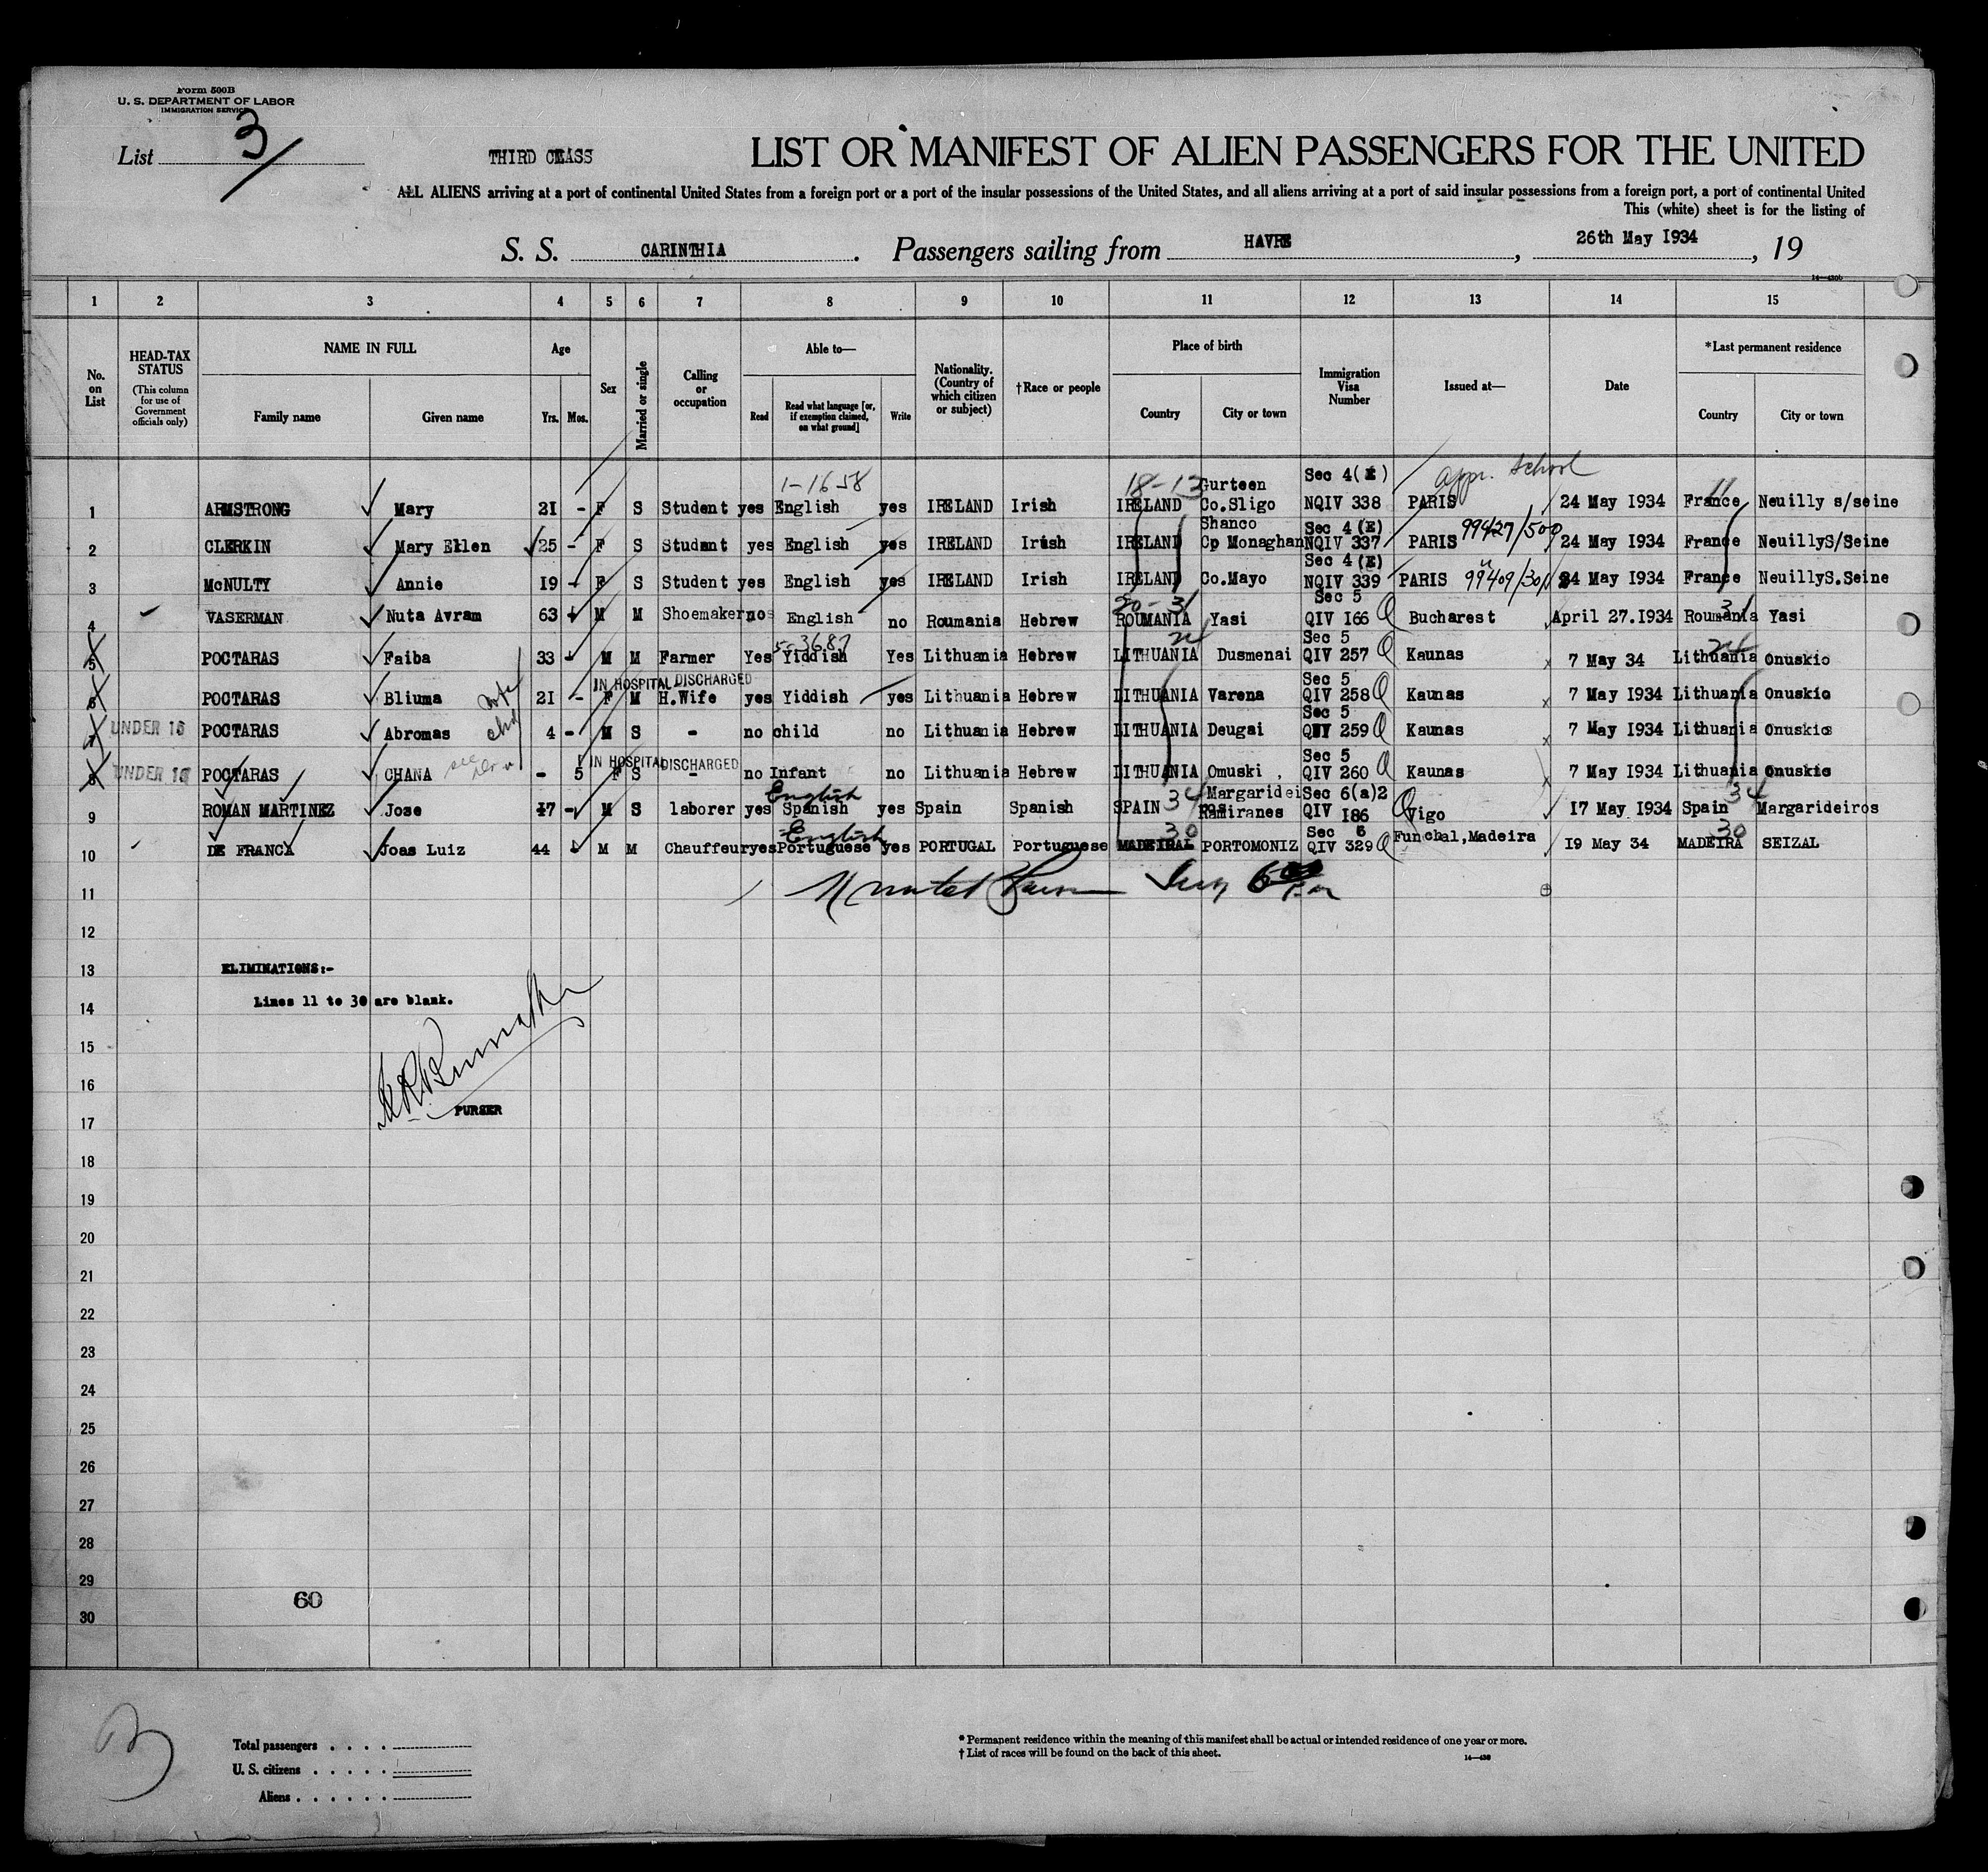 Form 500B
U. S. DEPARTMENT OF LABOR
IMMIGRATION SERVICE
List 3
THIRD CLASS
LIST OR MANIFEST OF ALIEN PASSENGERS FOR THE UNITED
ALL ALIENS arriving at a port of continental United States from a foreign port or a port of the insular possessions of the United States, and all aliens arriving at a port of said insular possessions from a foreign port, a port of continental United
This (white) sheet is for the listing of
S. S. CARINTHIA. Passengers sailing from HAVRE, 26th May 1934, 19
14—430b
1 2 3 4 5 6 7 8 9 10 11 12 13 14 15
No. on List
HEAD-TAX STATUS (This column for use of Government officials only)
NAME IN FULL
Family name Given name
Age
Yrs. Mos.
Sex
Married or single
Calling or occupation
Able to—
Read
Read what language [or, if exemption claimed, on what ground]
Write
Nationality. (Country of which citizen or subject)
†Race or people
Place of birth
Country City or town
Immigration Visa Number
Issued at—
Date
*Last permanent residence
Country City or town
1-16 58 18-13 Gurteen Sec 4(E) appr. School 11
1 ARMSTRONG Mary 21 - F S Student yes English yes IRELAND Irish IRELAND Co.Sligo NQIV 338 PARIS 24 May 1934 France Neuilly s/seine
Shanco Sec 4(E) 99427/500
2 CLERKIN Mary Ellen 25 - F S Student yes English yes IRELAND Irish IRELAND Co Monaghan NQIV 337 PARIS 24 May 1934 France NeuillyS/Seine
Sec 4(E)
3 McNULTY Annie 19 - F S Student yes English yes IRELAND Irish IRELAND Co.Mayo NQIV 339 PARIS 99409/301 24 May 1934 France NeuillyS.Seine
Sec 5 31
4 VASERMAN Nuta Avram 63 - M M Shoemaker no English no Roumania Hebrew ROUMANIA Yasi QIV 166 Bucharest April 27.1934 Roumania Yasi
5-3687 24 Sec 5 24
5 POCTARAS Faiba 33 - M M Farmer Yes Yiddish Yes Lithuania Hebrew LITHUANIA Dusmenai QIV 257 Kaunas 7 May 34 Lithuania Onuskio
IN HOSPITAL DISCHARGED Sec 5
6 POCTARAS Bliuma 21 - F M H.Wife yes Yiddish yes Lithuania Hebrew LITHUANIA Varena QIV 258 Kaunas 7 May 1934 Lithuania Onuskio
Sec 5
7 UNDER 16 POCTARAS Abromas 4 - M S - no child no Lithuania Hebrew LITHUANIA Deugai QIV 259 Kaunas 7 May 1934 Lithuania Onuskis
IN HOSPITAL DISCHARGED Sec 5
8 UNDER 16 POCTARAS CHANA - 5 F S - no Infant no Lithuania Hebrew LITHUANIA Omuski QIV 260 Kaunas 7 May 1934 Lithuania Onuskis
English 34 Sec 6(a)2 34
9 ROMAN MARTINEZ Jose 47 - M S laborer yes Spanish yes Spain Spanish SPAIN Margaridei ros Ramiranes QIV 186 Vigo 17 May 1934 Spain Margarideiros
English 30 Sec 6 30
10 DE FRANCA Joas Luiz 44 - M M Chauffeur yes Portuguese yes PORTUGAL Portuguese MADEIRA PORTOMONIZ QIV 329 Funchal,Madeira 19 May 34 MADEIRA SEIZAL
11
12
13 ELIMINATIONS:-
14 Lines 11 to 30 are blank.
15
16
PURSER
17
18
19
20
21
22
23
24
25
26
27
28
29
60
30
Total passengers
U. S. citizens
Aliens
* Permanent residence within the meaning of this manifest shall be actual or intended residence of one year or more.
† List of races will be found on the back of this sheet.
14—430